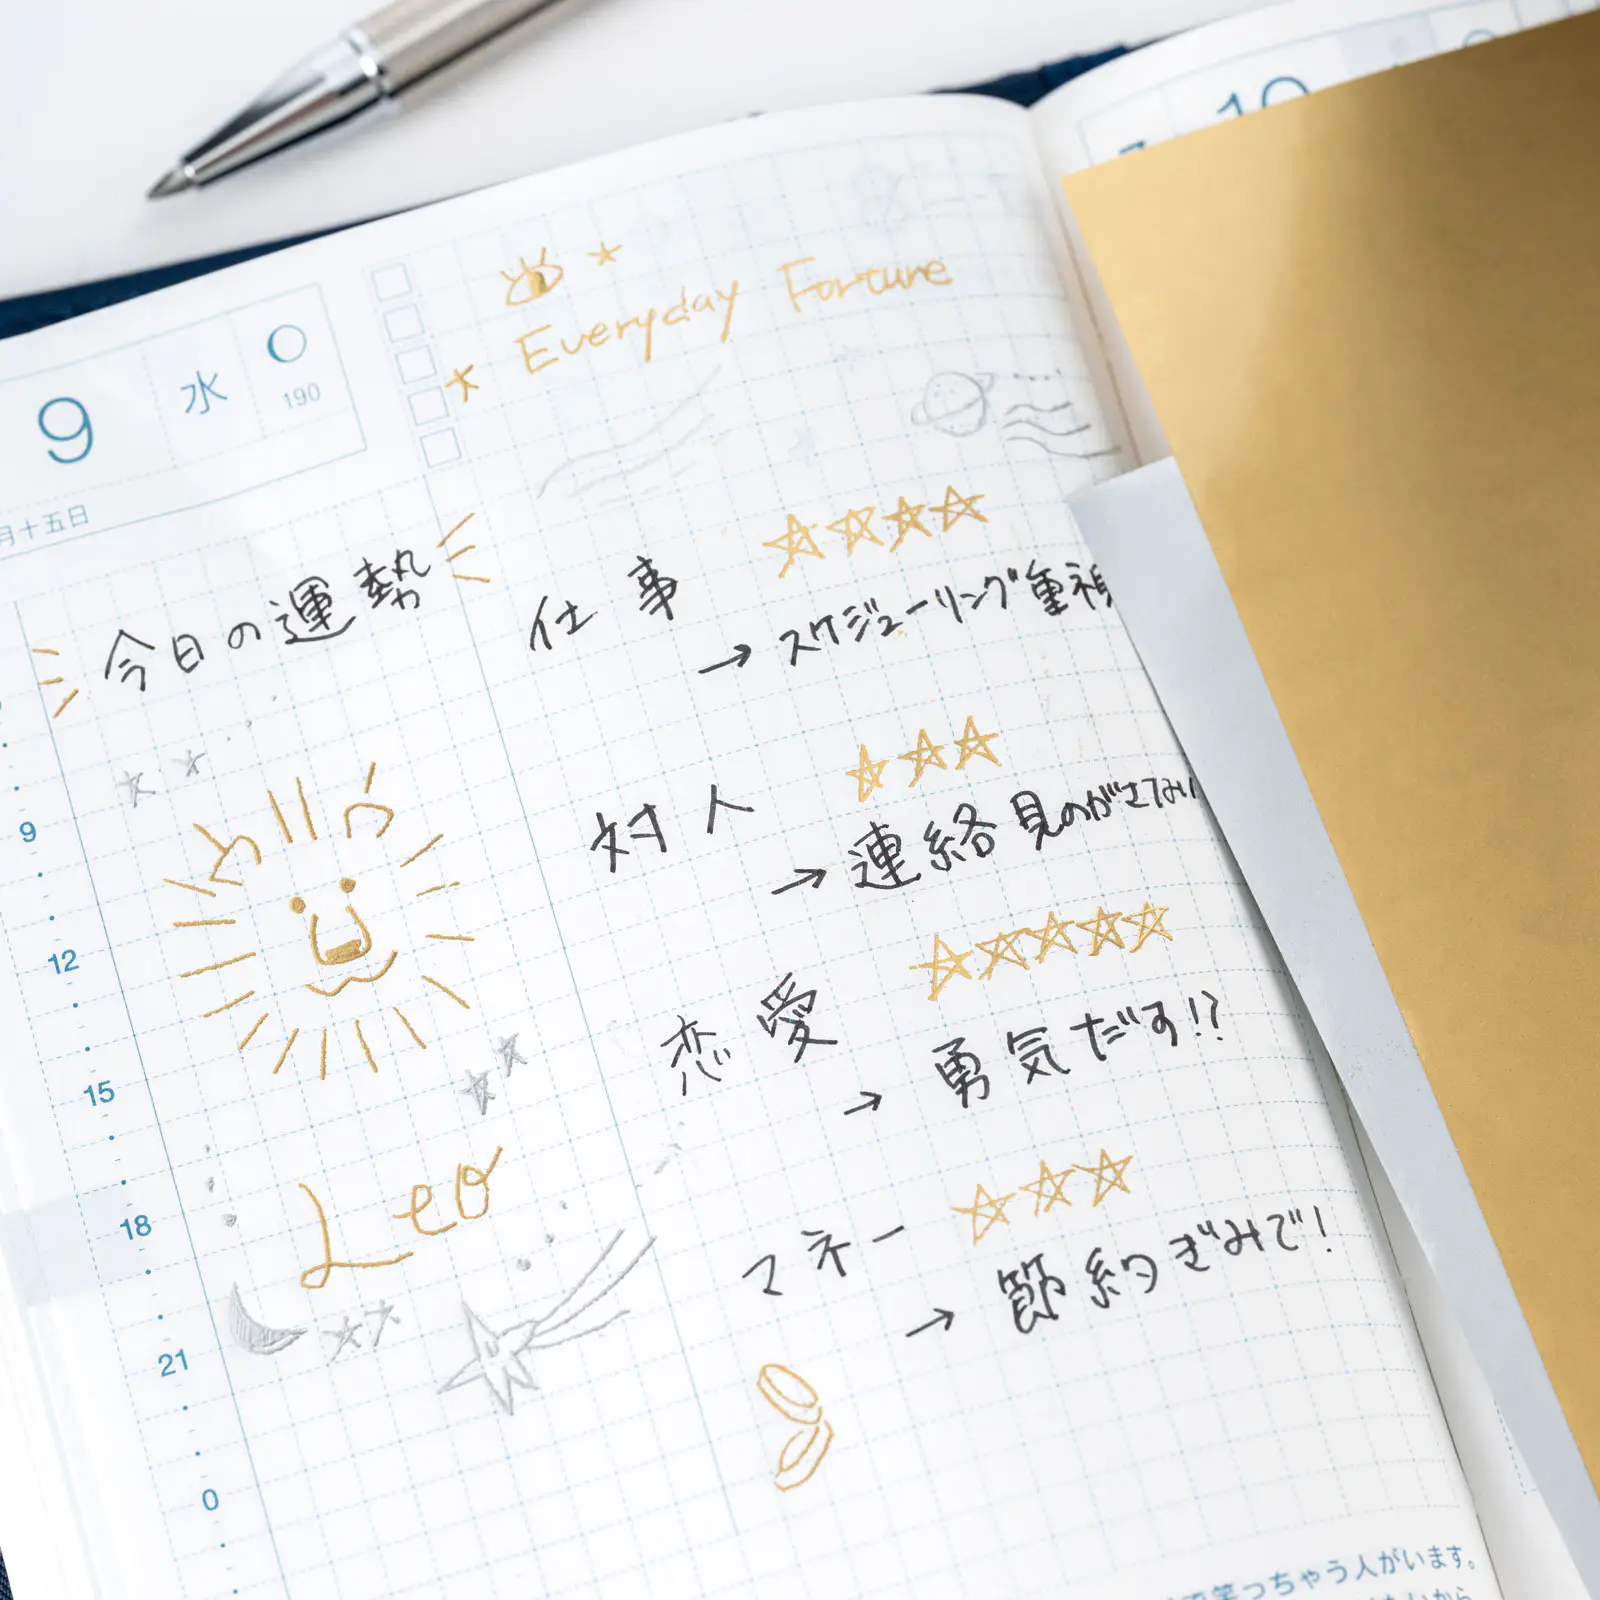 10
Everyday Fortune
9 水
190
月十五日
今日の運勢
9
12
15
18
21
0
Leo
仕事
→スケジューリング重視
対人
→連絡見のがさない
恋愛
→勇気だす!?
マネー
→節約ぎみで!
で笑っちゃう人がいます。